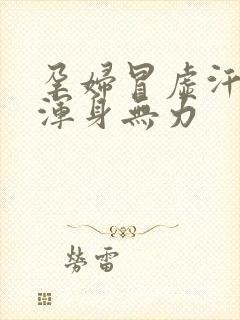 孕婦冒虛汗
渾身無力
勞雷